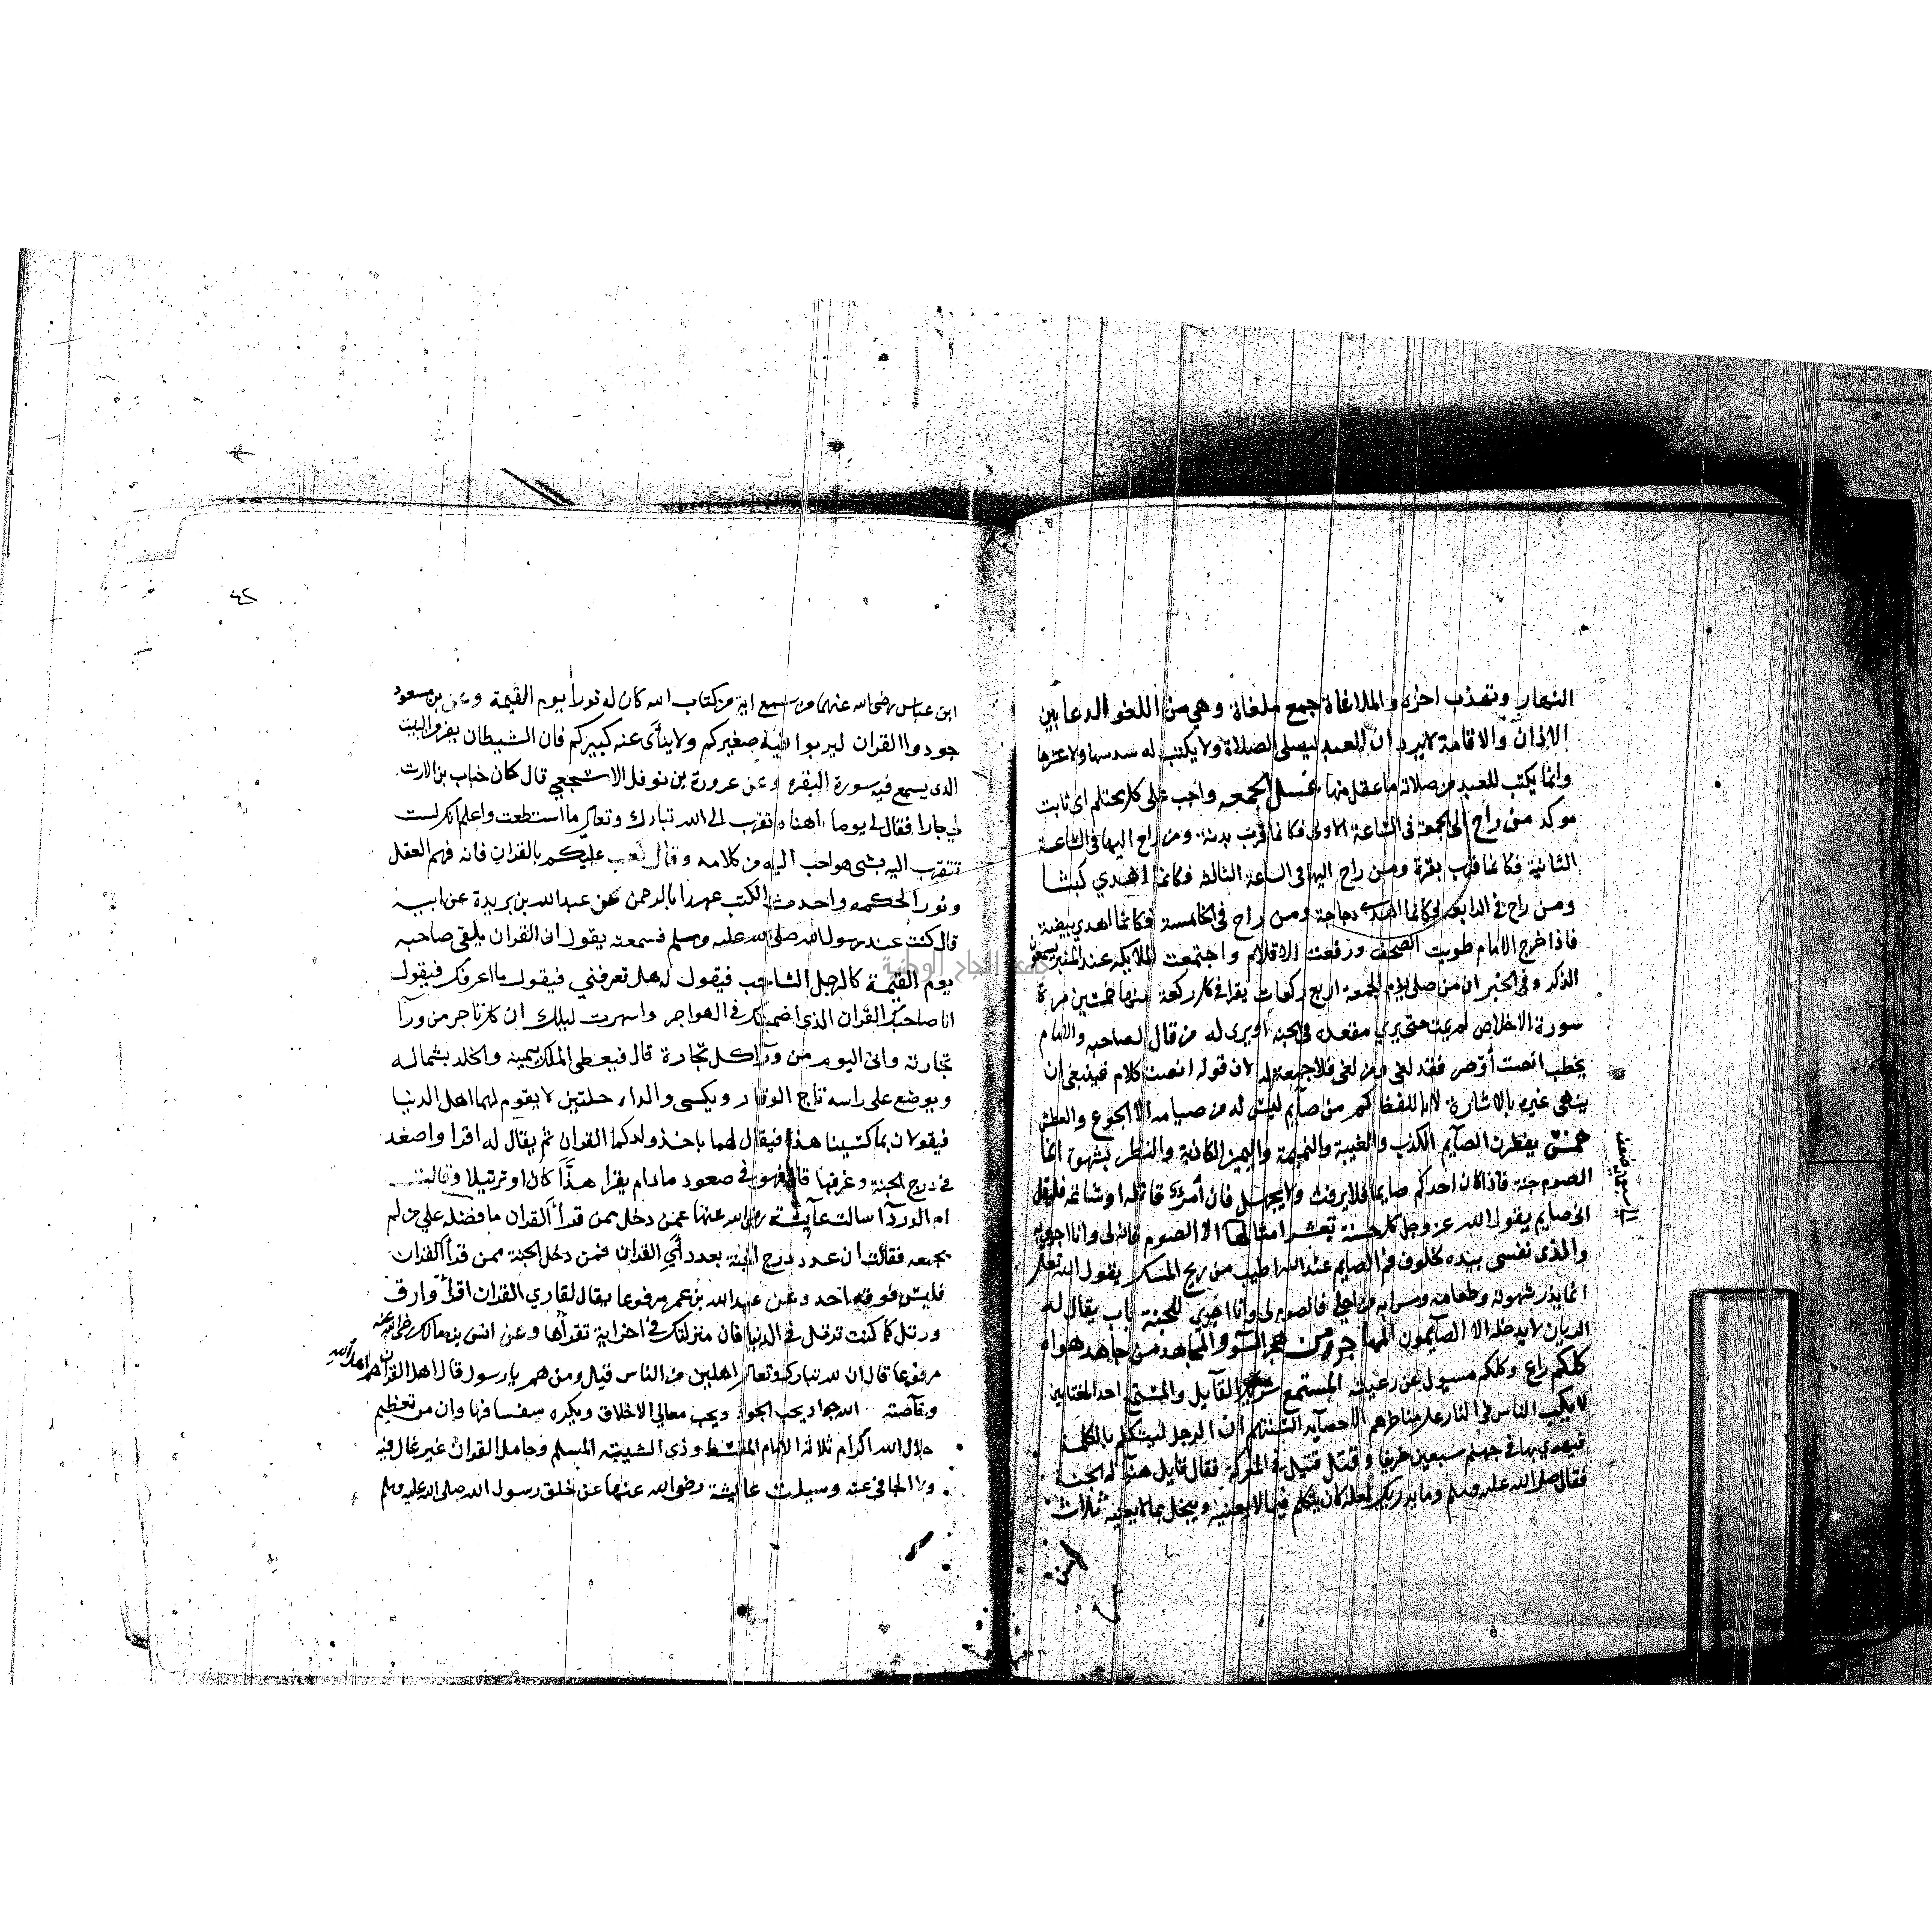 النهار وتهذب اخره والملاغاة جمع ملغاة وهي من اللغو الدعا بين
الاذان والاقامة لا يرد ان العبد ليصلي الصلاة ولا يكتب له سدسها ولا عشرها
وانما يكتب للعبد من صلاته ما عقل منها غسل الجمعه واجب على كل محتلم اى ثابت
موكد من راح الى الجمعة فى الساعة الاولى فكانما قرب بدنة ومن راح اليها فى الساعة
الثانية فكانما قرب بقرة ومن راح اليها فى الساعة الثالثه فكانما اهدي كبشا
ومن راح فى الرابعه فكانما اهدي دجاجة ومن راح فى الخامسة فكانما اهدي بيضة
فاذا خرج الامام طويت الصحف ورفعت الاقلام واجتمعت الملايكه عند المنبر يسمعون
الذكر وفى الخبر ان من صلى يوم الجمعة اربع ركعات يقرا فى كل ركعة منها خمسين مرة
سورة الاخلاص لم يمت حتى يري مقعده فى الجنه او يرى له من قال لصاحبه والامام
يخطب انصت أو صه فقد لغى ومن لغى فلا جمعة له لان قوله انصت كلام فينبغى ان
ينهى غيره بالاشارة لا باللفظ كم من صايم ليس له من صيامه الا الجوع والعطش
خمس يفطرن الصايم الكذب والغيبة والنميمة واليمين الكاذبة والنظر بشهوة انما
الصوم جنة فاذا كان احدكم صايما فلا يرفث ولا يجهل فان أمرؤ قاتله او شاتمه فليقل
انى صايم يقول الله عز وجل كل حسنة بعشر امثالها الا الصوم فانه لى وانا اجزي به
والذى نفسى بيده لخلوف فم الصايم عند الله اطيب من ريح المسك يقول الله تعالى
انما يذر شهوته وطعامه وشرابه من اجلى فالصوم لى وانا اجزي به للجنة باب يقال له
الريان لا يدخله الا الصايمون المهاجر من هجر السؤ والمجاهد من جاهد هواه
كلكم راع وكلكم مسيول عن رعيته المستمع شريك القايل والمستمع احد المغتابين
لا يكب الناس فى النار على مناخرهم الا حصايد السنتهم ان الرجل ليتكلم بالكلمة
فيهوي بها فى جهنم سبعين خريفا وقتل قتيل فى المعركة فقال قايل هنيا له الجنة
فقال صلى الله عليه وسلم وما يدريك لعله كان يتكلم فيما لا يعنيه ويبخل بما لا يعنيه ثلاث
٤٢
ابن عباس رضى الله عنهما من سمع اية من كتاب الله كان له نورا يوم القيمة وعن بن مسعود
جودوا القران ليربوا فيه صغيركم ولا ينأى عنه كبيركم فان الشيطان يفر من البيت
الدى يسمع فيه سورة البقره وعن عروة بن نوفل الاشجعي قال كان خباب بن الارت
لي جارا فقال لي يوما يا هناه تقرب الى الله تبارك وتعالى ما استطعت واعلم انك لست
تتقرب اليه بشى هو احب اليه من كلامه وقال كعب عليكم بالقران فانه فهم العقل
ونور الحكمه واحدث الكتب عهدا بالرحمن عن عبد الله بن بريدة عن ابيه
قال كنت عند رسول الله صلى الله عليه وسلم فسمعته يقول ان القران يلقى صاحبه
يوم القيمة كالرجل الشاحب فيقول له هل تعرفني فيقول ما اعرفك فيقول
انا صاحبك القران الذي اضميتك فى الهواجر واسهرت ليلك ان كل تاجر من ورآ
تجارته وانى اليوم من ورآ كل تجارة قال فيعطى الملك بيمينه والخلد بشماله
ويوضع على راسه تاج الوقار ويكسى والداه حلتين لا يقوم لهما اهل الدنيا
فيقولان بما كسينا هذا فيقال لهما باخذ ولدكما القران ثم يقال له اقرا واصعد
فى درج الجنة وغرفها قال فهو فى صعود مادام يقرا هذًّا كان او ترتيلا وقالت
ام الدردآ سالت عآيشة رضى الله عنها عمن دخل ممن قرأ القران ما فضله على من لم
يجمعه فقالت ان عدد درج الجنة بعدد أي القران فمن دخل الجنة ممن قرأ القران
فليس فوقه احد وعن عبد الله بن عمر مرفوعا يقال لقاري القران اقرأ وارق
ورتل كما كنت ترتل فى الدنيا فان منزلتك فى اخر اية تقرأها وعن انس بن مالك رضى الله عنه
مرفوعا قال ان لله تبارك وتعالى اهلين من الناس قيل ومن هم يا رسول قال اهل القران هم اهل الله
وخآصته الله جواد يحب الجود ويحب معالي الاخلاق ويكره سفسافها وان من تعظيم
جلال الله اكرام ثلاثة الامام المقسط وذى الشيبته المسلم وحامل القوان غير غال فيه
ولا الجافى عنه وسيلت عايشة رضى الله عنها عن خلق رسول الله صلى الله عليه وسلم